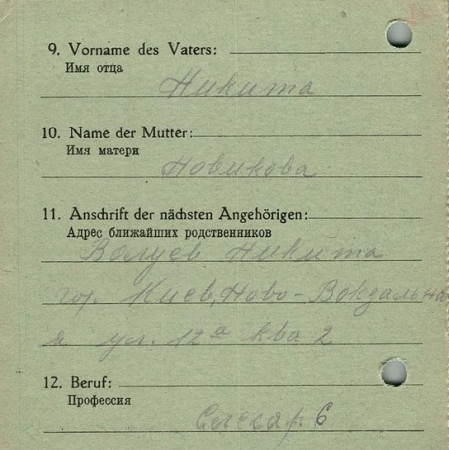 9. Vorname des Vaters:
Имя отца
Никита
10. Name der Mutter:
Имя матери
Новикова
11. Anschrift der nächsten Angehörigen:
Адрес ближайших родственников
Валуев Никита
гор. Киев, Ново-Вокзальна
я ул. 12а ква 2
12. Beruf:
Профессия
Слесар 6